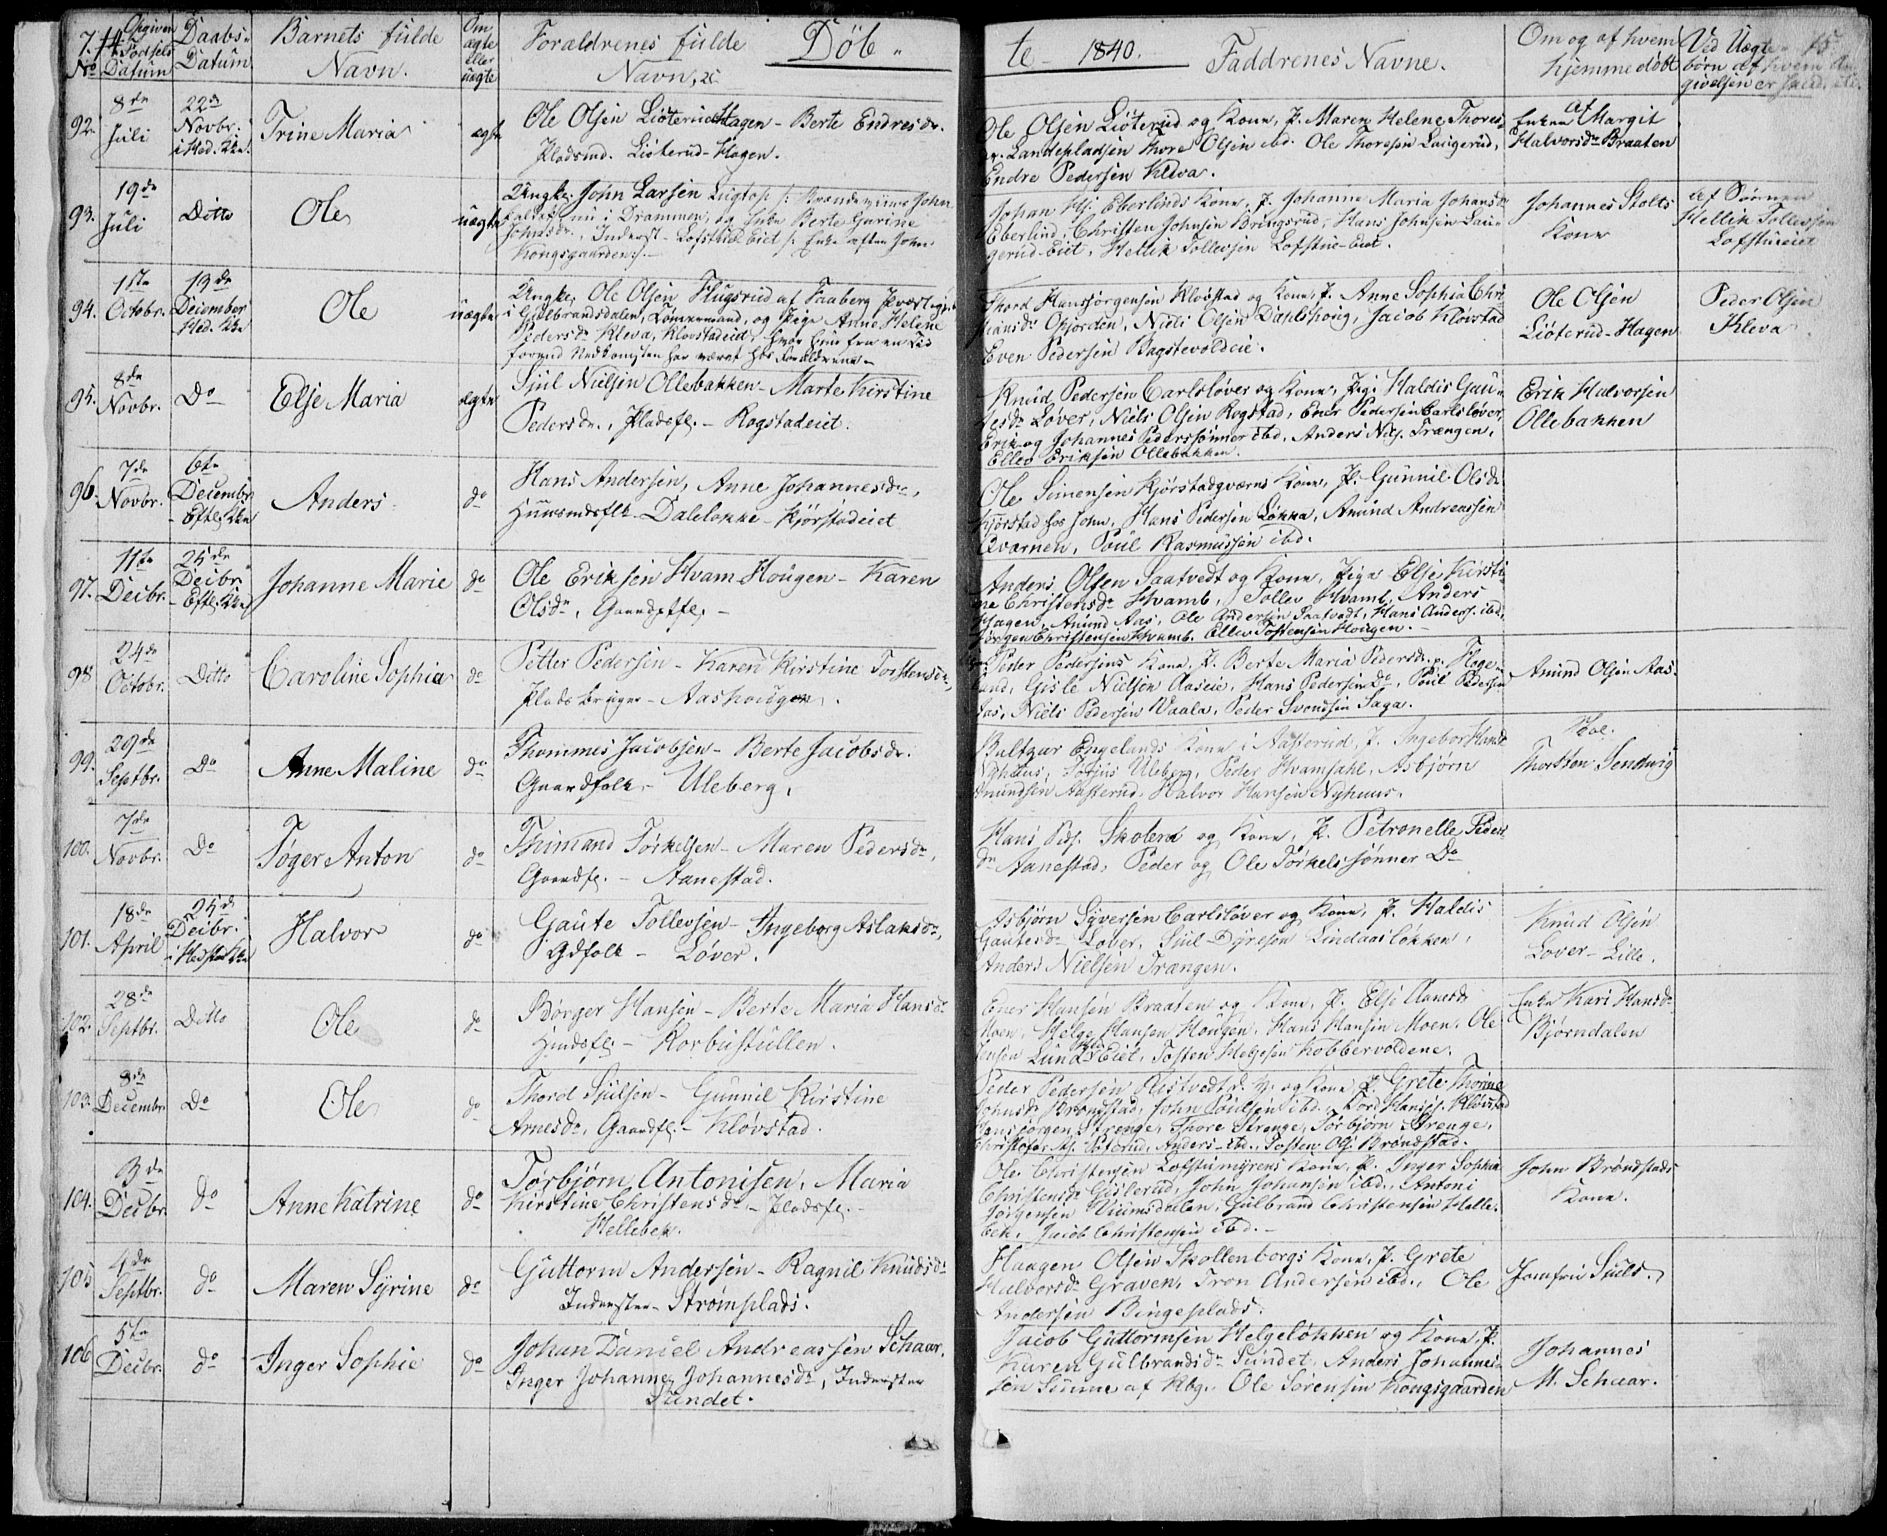 7. 14. Opgiven Daabs- Barnets fulde Om Forældrenes fulde Døb-
No Fødsels Datum Navn. ægte Navn, &c
Datum eller
uægte
te 1840. Faddrenes Navne. Om og af hvem Ved Uægte 15.
hjemmedøbt børn af hvem An-
givelsen er skeed. etc.
92. 8de Juli
22de Novbr. i Hed. Kke.
Trine Maria
ægte
Ole Olsen Liøterud Hagen - Berte Endresdr.
Pladsmd. Liøterud-Hagen.
Ole Olsen Liøterud og Kone, P. Maren Helene Thores-
dr. Landepladsen Thore Olsen ibd. Ole Thoresen Laugerud,
Endre Pedersen Kleva.
af
Enken Margit
Halvorsdr Braaten
93. 19de Juli
Ditto
Ole
uægte
Ungk. John Larsen Lugtop
kaldet nu i Drammen, og Enke Berte Gurine
Johnsdr., Inderst - Lofsthuseiet /: Enke efter John
Kongsgaarden :/
Johan Hj. Eberlinds Kone, P. Johanne Maria Johansdr
Eberlind, Christen Johnsen Bringsrud, Hans Johnsen Lau-
gerud-Eiet, Hellik Tollevsen Lofsthus-Eiet.
Johannes Stolts
Kone
af Sønnen
Hellik Tollevsen
Lofstueiet
94. 1ste Octobr.
13de December Hed. Kke
Ole
uægte
Ungk. Ole Olsen Flugsrud af Faaberg Præstegjeld
i Gulbrandsdalen, Tømmermand, og Pige Anne Helene
Pedersdr Kleva, Klovstadeiet, hvor hun fra en Tid
forend Nedkomsten har været hos Forældrene -
Thord Hansjørgensen Klovstad og Kone, P. Anne Sophia Chri-
stiansdr Gjorden, Niels Olsen Daplehoug, Jacob Klovstad
Even Pedersen Bagstevoldeie.
Ole Olsen
Liøterud-Hagen
Peder Olsen
Kleva
95. 8de Novbr.
Do
Else Maria
ægte
Sjul Nielsen Ollebakken - Marte Kirstine
Pedersdr., Pladsfl. - Rogstadeiet.
Knud Pedersen Carlsløver og Kone, Pige Haldis Gau-
tesdr Løver, Niels Olsen Rogstad, Ener Pedersen Carlsløver,
Erik og Johannes Pederssønner ibd, Anders Nils. Trængen,
Ellev Eriksen Ollebakken.
Erik Halvorsen
Ollebakken
96. 7de Novbr.
6te Decembr. - Eftel. Kke
Anders
do
Hans Andersen, Anne Johannesdr.,
Huusmdsflk. Daleløkke - Kjørstadeiet
Ole Simensen Kjørstadqværns Kone, P. Gunnil Olsdr
Kjørstad hos John, Hans Pedersen Løkka, Amund Andreassen
Qværnen, Poul Rasmussen ibd.
97. 11te Decbr.
25de Decbr. - Eftel. Kke
Johanne Marie
do
Ole Eriksen Hvam-Hougen - Karen
Olsdr, Gaardsfl. -
Anders Olsen Saatvedt og Kone, Pige Else Kirsti-
ne Christensdr Hvamb, Tollev Hvamb, Anders
Hagen, Amund Aas, Ole Andersen Saatvedt, Hans Anders. ibd,
Jørgen Christensen Hvamb, Ellev Tostensen Hougen.
98 24de Octobr.
Ditto
Caroline Sophia
do
Petter Pedersen - Karen Kirstine Torstensdr,
Plads bruger - Aashougen.
Peder Pedersens Kone, P. Berte Maria Pedersdr. Hoge-
lund, Gisle Nielsen Aaseie, Hans Pedersen Do, Poul Pedersen
Aas, Niels Pedersen Vaala, Peder Svendsen Saga.
Amund Olsen Aas.
99. 29de Septbr.
Do
Anne Maline
do
Thommes Jacobsen - Berte Jacobsdr.
Gaardfolk - Uleberg.
Baltzar Engelands Kone i Aasterud, P. Ingebor Hansdr
Nyhuus, Torjus Uleberg, Peder Hvamsahl, Asbjørn
Amundsen Aasterud, Halvor Hansen Nyhuus.
Thorsten Sendvig
100. 7de Novbr.
Do
Tøger Anton
do
Thimand Torkelsen - Maren Pedersdr,
Gaardfl. - Aanestad.
Hans Pedr. Skolerd og Kone, P. Petronelle Peders
dr Aanestad, Peder og Ole Torkelssønner Do
101. 18de April
25de Decbr. i Hedst. Kke
Halvor
do
Gaute Tollevsen - Ingeborg Aslaksdr,
Gdfolk - Løver.
Asbjørn Syversen Carlsløver og Kone, P. Haldis
Gautesdr Løver, Sjul Dyresen Lindaasløkken,
Anders Nielsen Trængen.
Knud Olsen
Løver-Lille.
102. 28de Septbr.
Ditto
Ole
do
Børger Hansen - Berte Maria Hansdr
Huusfl. - Korbustullen.
Ener Hansen Braaten og Kone, P. Else Hansdr
Moen, Helge Hansen Hougen, Hans Hansen Moen, Ole
Jensen Lunds Eiet, Tosten Helgesen Kobbervoldene.
Enke Kari Hansdr
Bjørndalen
103. 8de Decembr.
Do
Ole
do
Thord Sjulsen - Gunnil Kirstine
Arnesdr, Gaardfl. - Klovstad.
Peder Pedersen Ristvedt og Kone, P. Grete Thorine
Johnsdr Brøndstad, John Poulsen ibd., Tord Hansj. Klovstad
Hansjørgen Strenge, Thore Strenge, Torbjørn Strenge,
Christopher, Anders ibd., Tosten Ols. Brøndstad.
104. 3de Decbr.
do
Anne Katrine
do
Torbjørn Antonisen, Maria
Kirstine Christensdr - Pladsfl. -
Hellebek.
Ole Christensen Lofstumyrens Kone, P. Inger Sophia
Christensdr Gislerud, John Johansen ibd., Antoni
Jørgensen Huumsdalen, Gulbrand Christensen Helle-
bek, Jacob Christensen ibd. -
John Brøndstads
Kone.
105 4de Septbr.
do
Maren Syrine
do
Guttorm Andersen - Ragnil Knudsdr
Inderster - Strømsplads.
Haagen Olsen Skollenborgs Kone, P. Grete
Halvorsdr Graven, Tron Andersen ibd., Ole
Andersen Bingeplads.
Jomfru Sjuls.
106 5te Decbr.
do
Inger Sophie
do
Johan Daniel Andreassen Schaar,
Inger Johanne Johannesdr, Inderster
Sundet.
Jacob Guttormsen Helgeløkken og Kone, P.
Karen Gulbrandsdr Sundet, Anders Johannes-
sen Sunne af Kbg. Ole Sørensen Kongsgaarden
Johannes
M. Schaar.